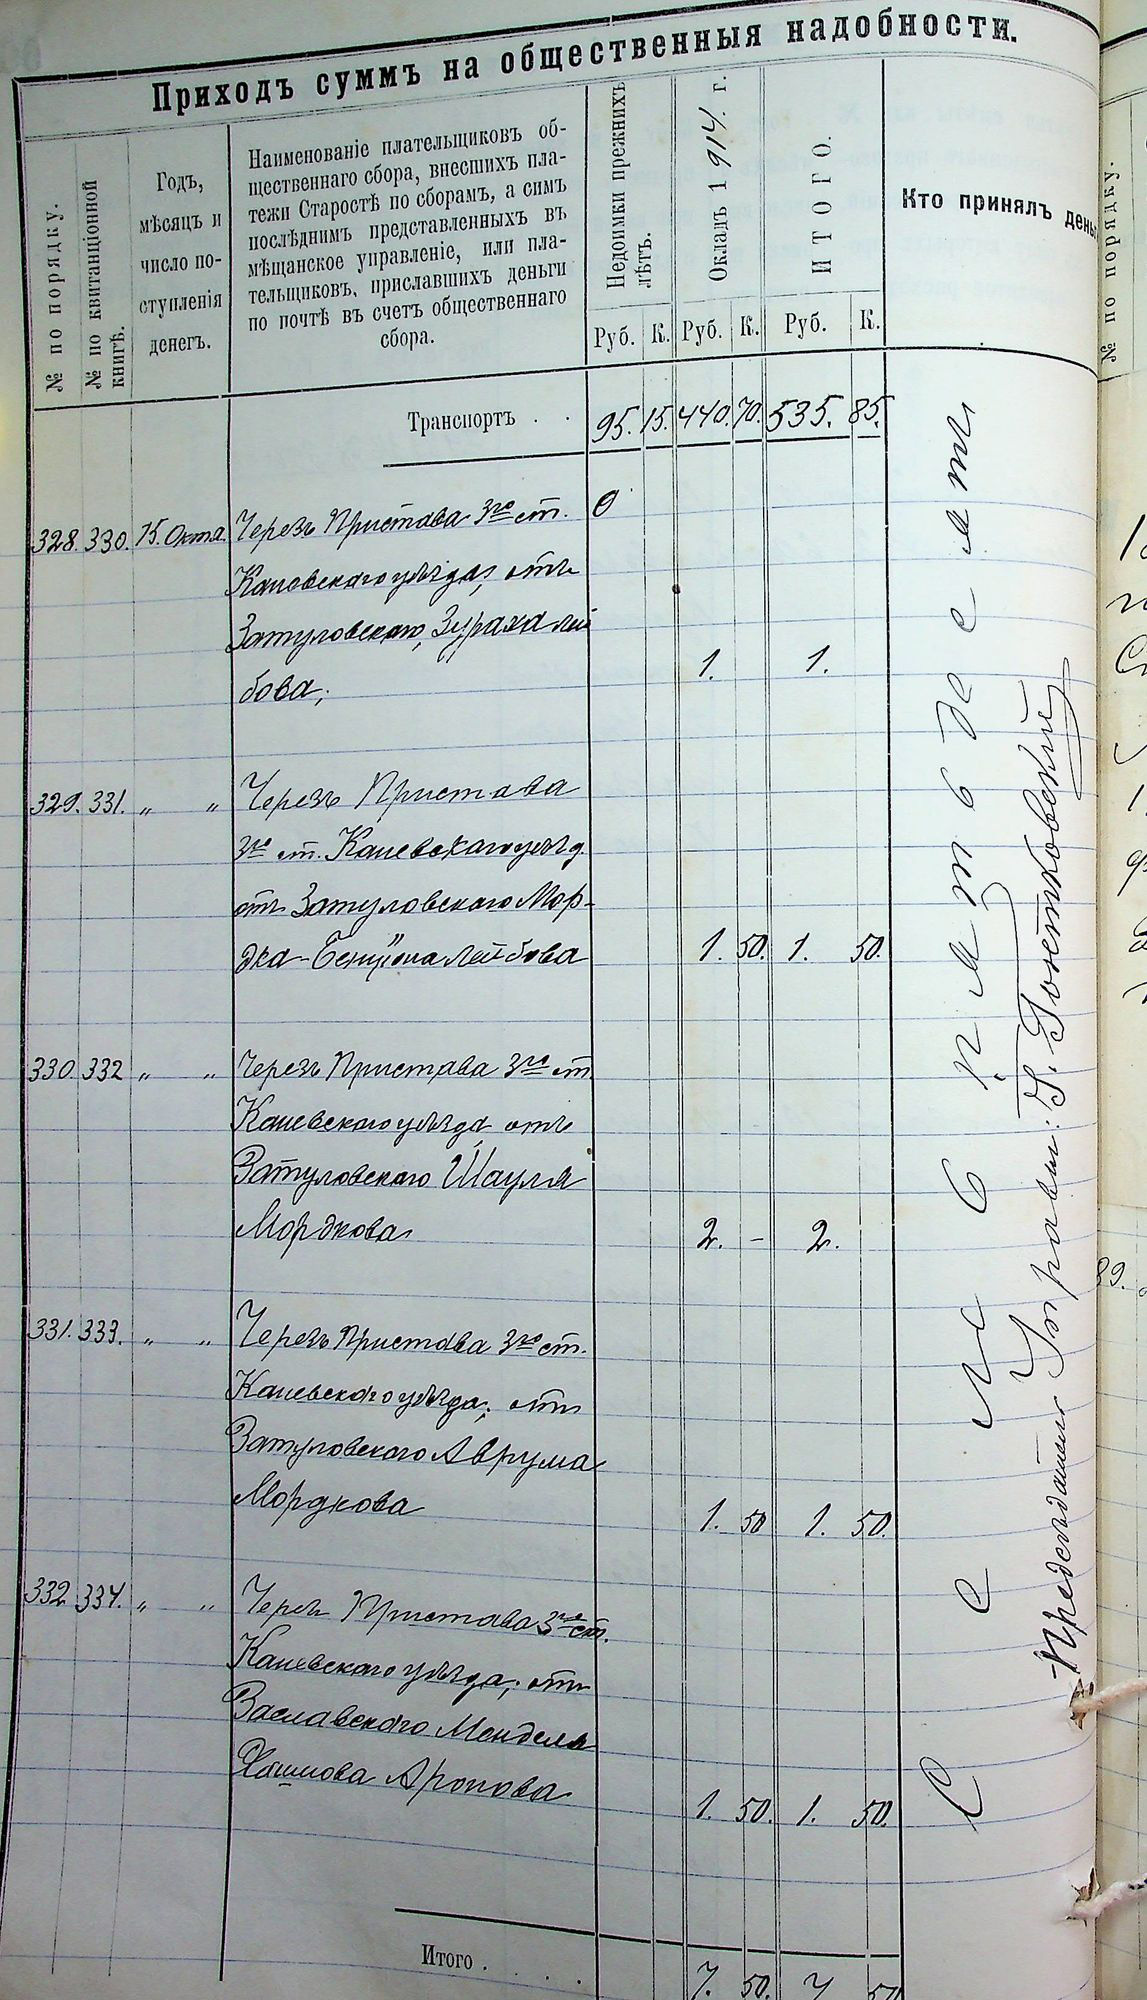 Приходъ суммъ на общественныя надобности.
№ по порядку.
№ по квитанціонной книгѣ.
Годъ,
мѣсяцъ и
число по-
ступленія
денегъ.
Наименованіе плательщиковъ об-
щественнаго сбора, внесшихъ пла-
тежи Старостѣ по сборамъ, а симъ
послѣднимъ представленныхъ въ
мѣщанское управленіе, или пла-
тельщиковъ, приславшихъ деньги
по почтѣ въ счетъ общественнаго
сбора.
Недоимки прежнихъ лѣтъ.
Окладъ 1914. г.
ИТОГО.
Кто принялъ день
Руб. К. Руб. К. Руб. К.
Транспортъ . . 95. 15. 440. 70. 535. 85.
328. 330. 15. Октя. Черезъ Пристава 3го ст. 0
Каневскаго уѣзда, отъ
Затуловскаго, Зураха Лей
бова; 1. 1.
329. 331. „ „ Черезъ Пристава
3го ст. Каневскаго уѣзд.
отъ Затуловскаго Мор-
дка-Бенціона Лейбова 1. 50. 1. 50.
330. 332 „ „ Черезъ Пристава 3го ст.
Каневскаго уѣзда отъ
Затуловскаго Шауля
Мордкова 2. - 2.
331. 333. „ „ Черезъ Пристава 3го ст.
Каневскаго уѣзда; отъ
Затуловскаго Аврума
Мордкова 1. 50 1. 50.
332 334. „ „ Черезъ Пристава 3го ст.
Каневскаго уѣзда; отъ
Заславскаго Менделя
Аронова 1. 50. 1. 50.
Итого . . . . 7. 50. 7 50
Предсѣдатель Управы:
№ по порядку.
89.